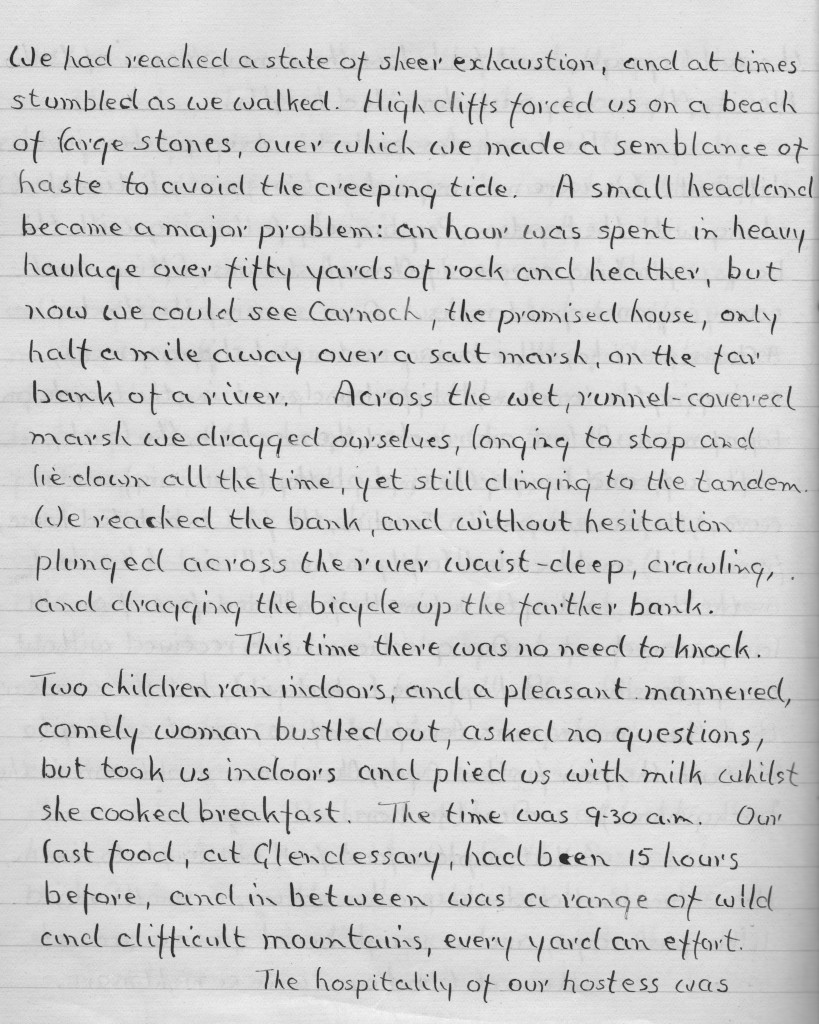 We had reached a state of sheer exhaustion, and at times
stumbled as we walked. High cliffs forced us on a beach
of large stones, over which we made a semblance of
haste to avoid the creeping tide. A small headland
became a major problem: an hour was spent in heavy
haulage over fifty yards of rock and heather, but
now we could see Carnoch, the promised house, only
half a mile away over a salt marsh, on the far
bank of a river. Across the wet, runnel-covered
marsh we dragged ourselves, longing to stop and
lie down all the time, yet still clinging to the tandem.
We reached the bank, and without hesitation
plunged across the river waist-deep, crawling,
and dragging the bicycle up the farther bank.
This time there was no need to knock.
Two children ran indoors, and a pleasant mannered,
comely woman bustled out, asked no questions,
but took us indoors and plied us with milk whilst
she cooked breakfast. The time was 9.30 a.m. Our
last food, at Glendessary, had been 15 hours
before, and in between was a range of wild
and difficult mountains, every yard an effort.
The hospitality of our hostess was